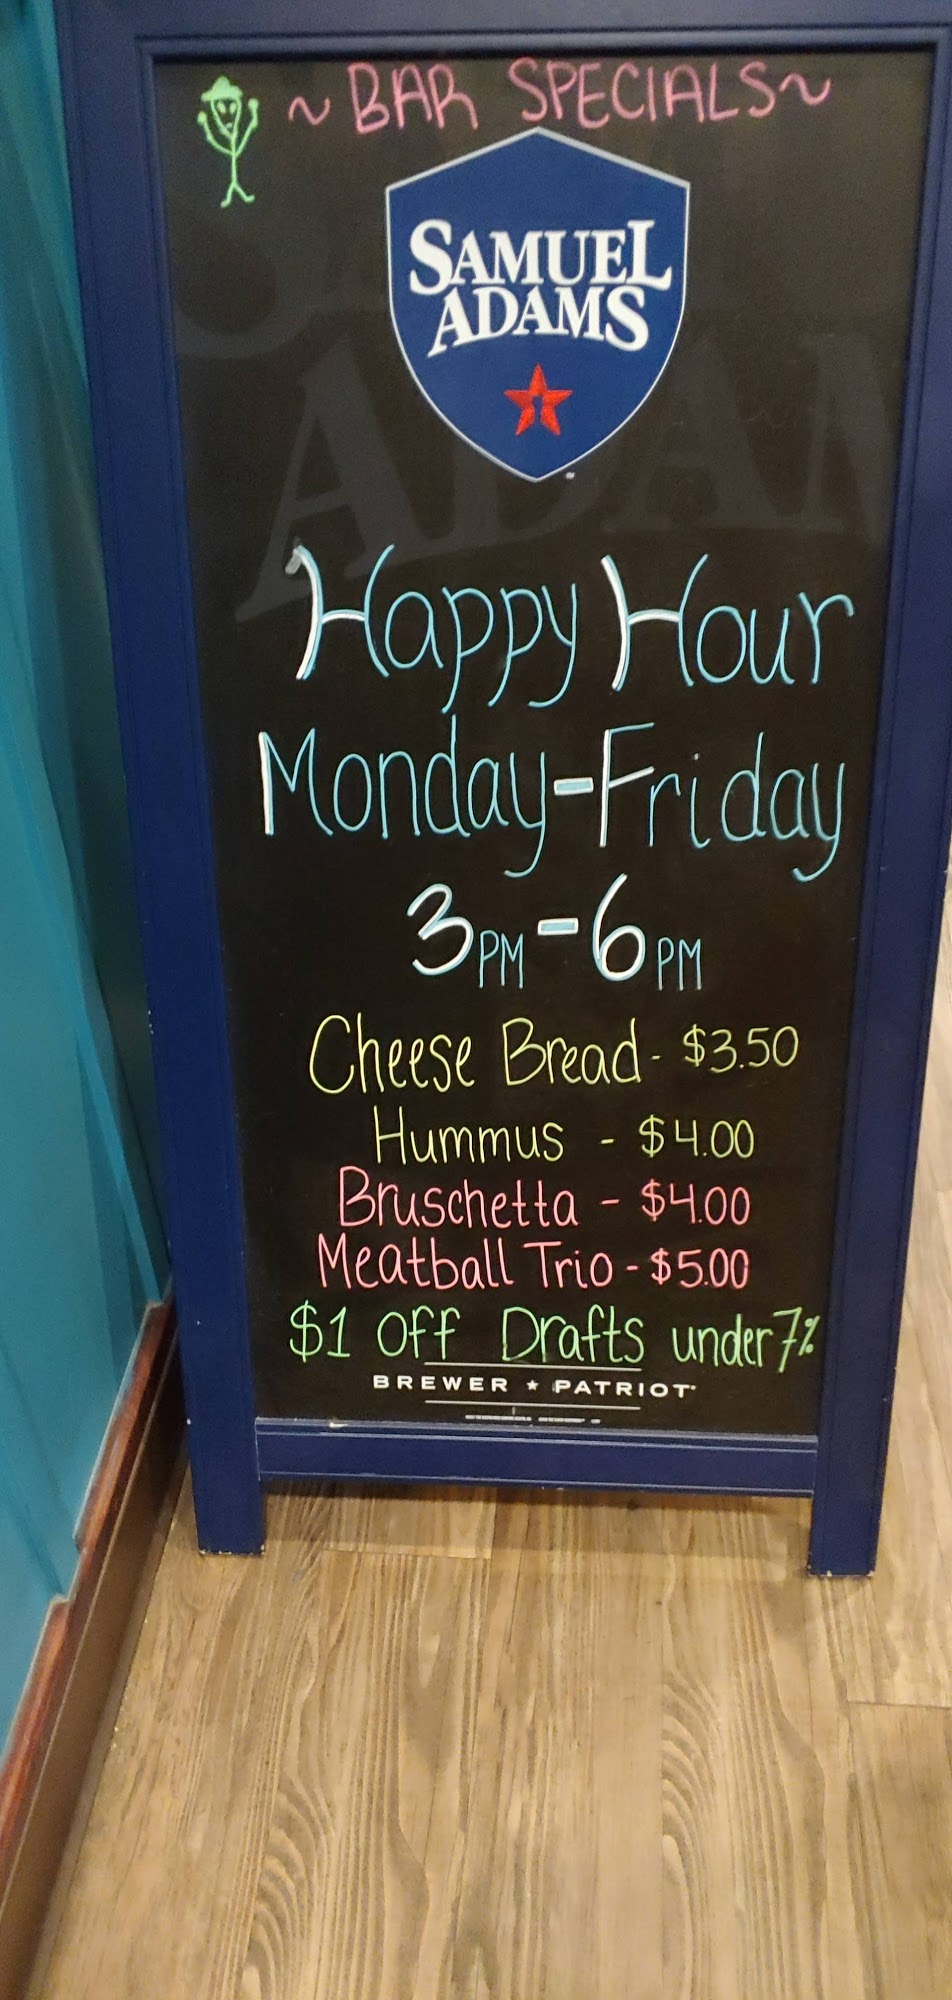 ~ BAR SPECIALS ~
SAMUEL
ADAMS
Happy Hour
Monday-Friday
3PM-6PM
Cheese Bread - $3.50
Hummus - $4.00
Bruschetta - $4.00
Meatball Trio - $5.00
$1 Off Drafts under 7%
BREWER ★ PATRIOT